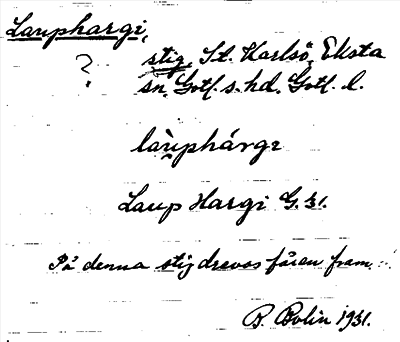 Lauphargi,
? stig, St. Karlsö, Eksta
sn, Gotl. s. hd, Gotl. l.
Laup Hargi G. 31.
På denna stig drevos fåren fram.
B. Bolin 1931.